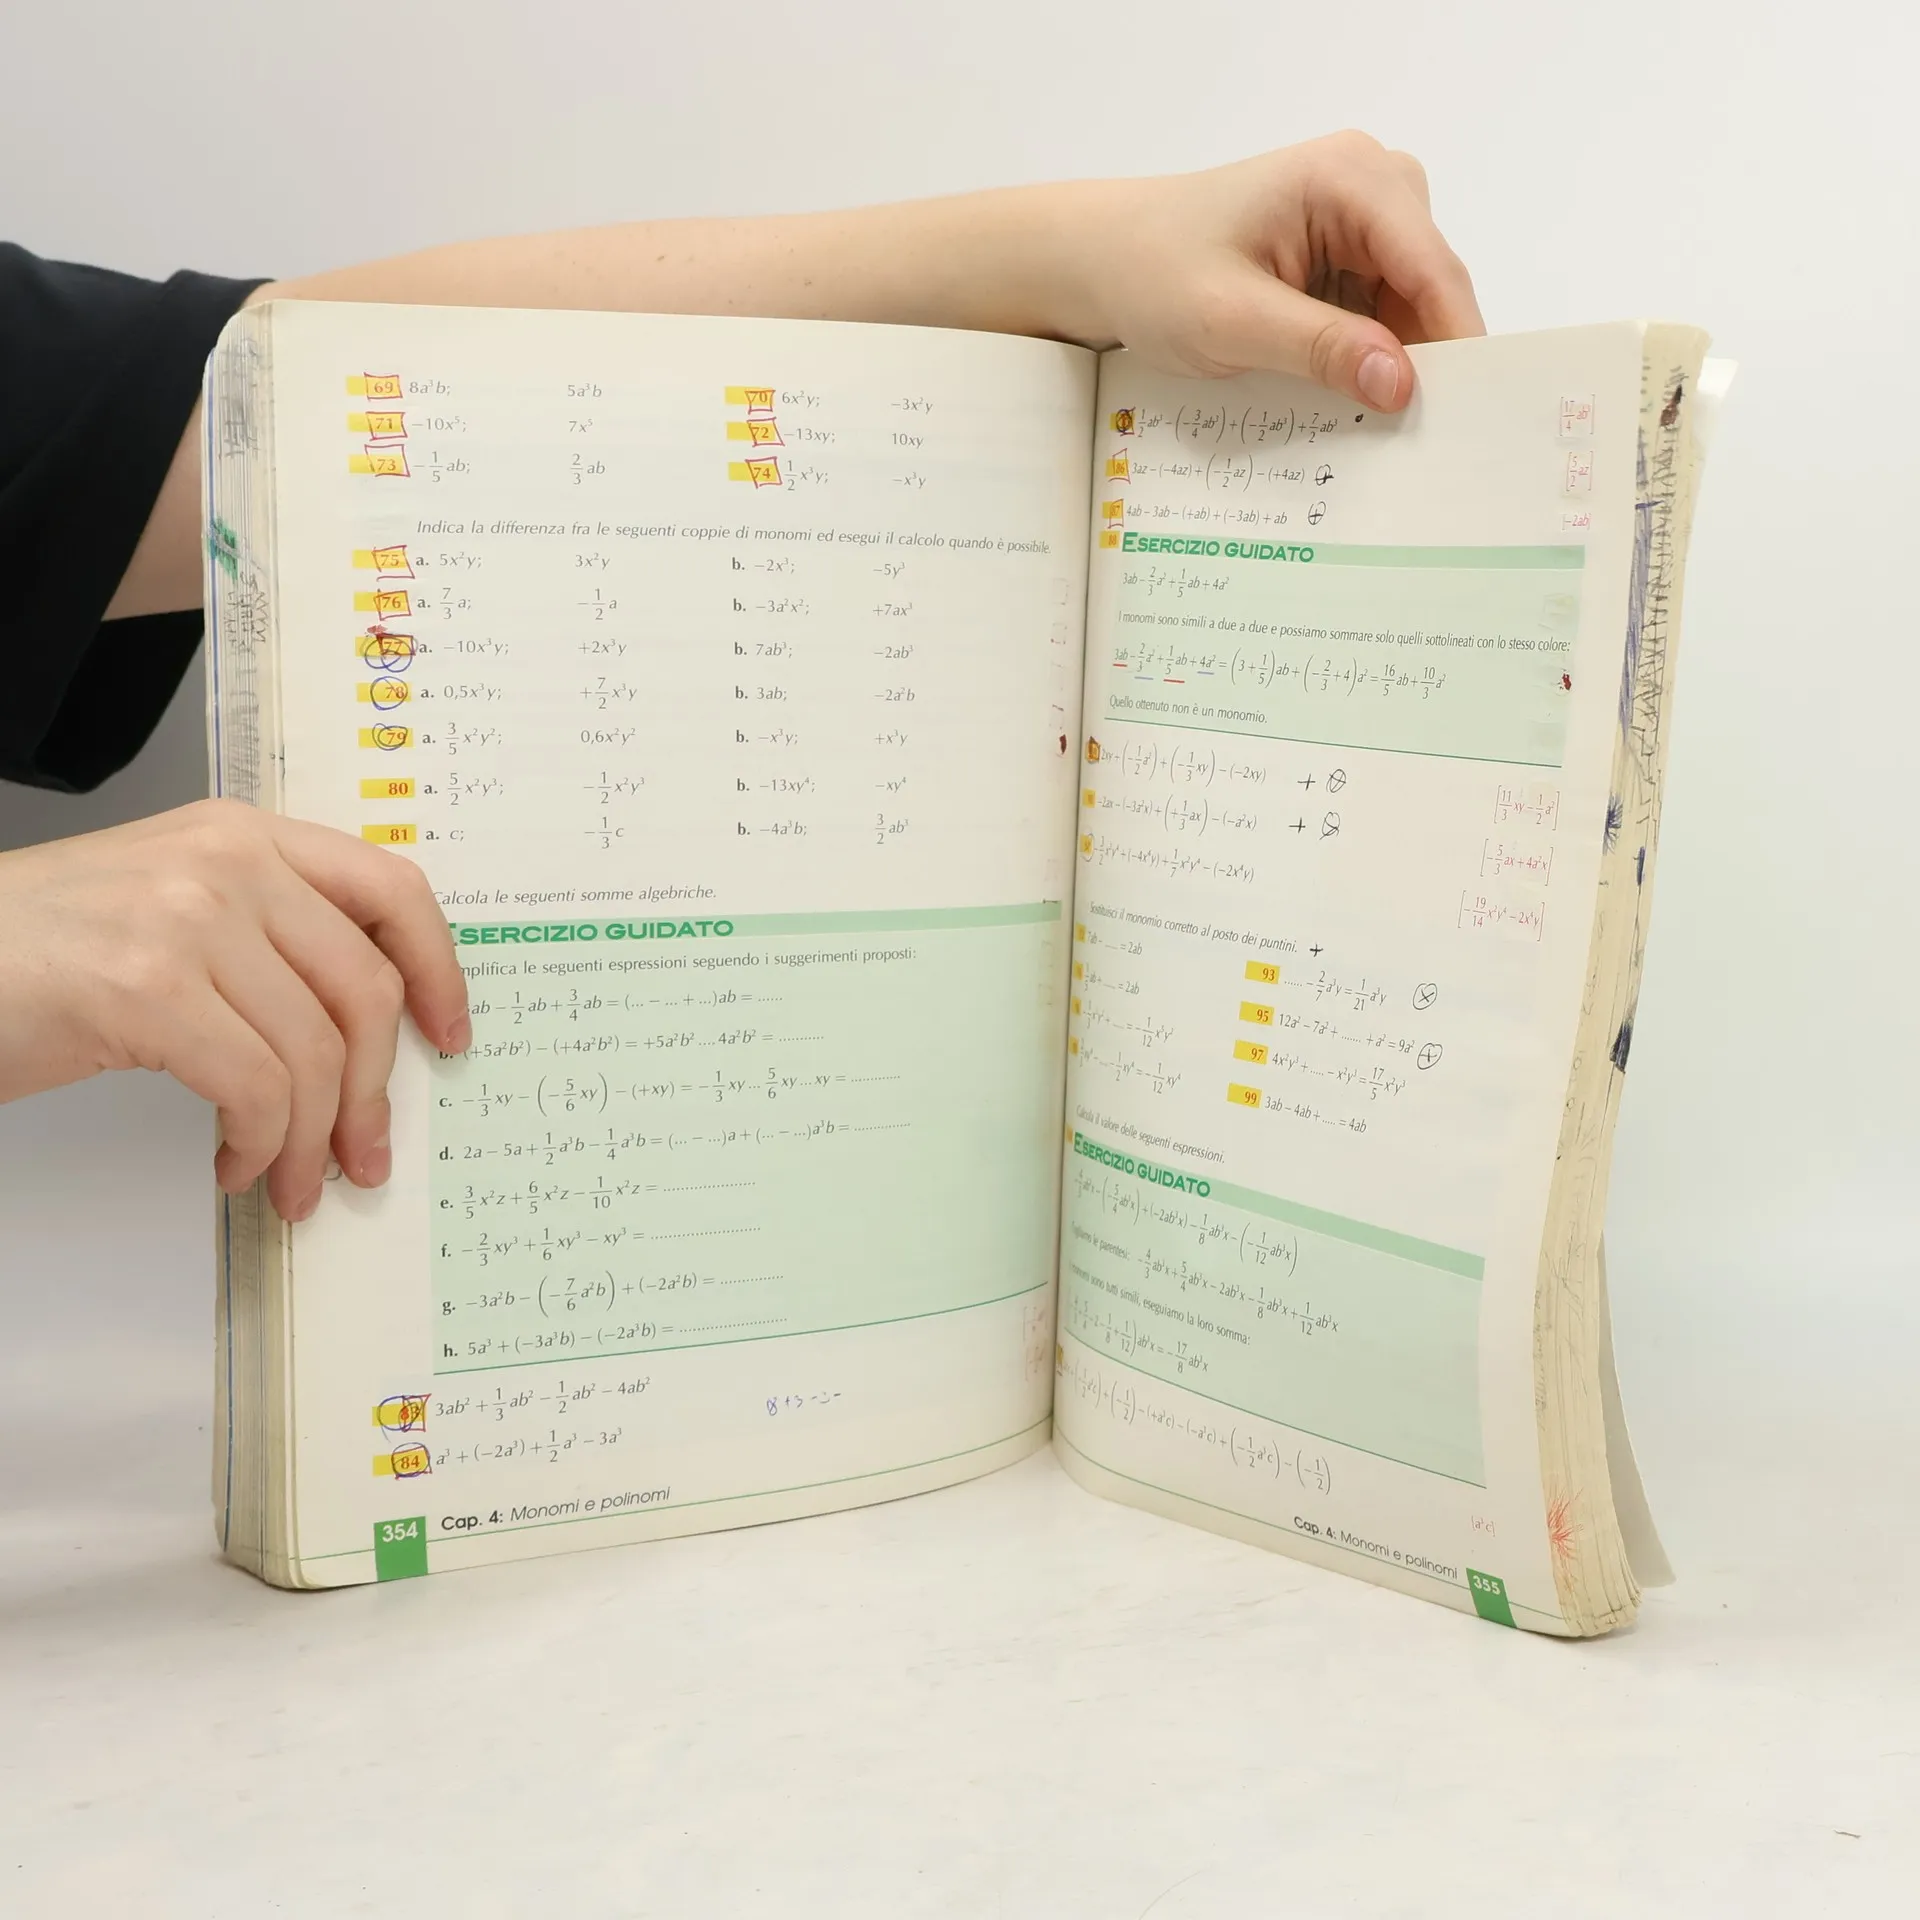 69 8a³b; 5a³b 70 6x²y; −3x²y
71 −10x⁵; 7x⁵ 72 −13xy; 10xy
73 −1/5 ab; 2/3 ab 74 1/2 x³y; −x³y
Indica la differenza fra le seguenti coppie di monomi ed esegui il calcolo quando è possibile.
75 a. 5x²y; 3x²y b. −2x³; −5y³
76 a. 7/3 a; −1/2 a b. −3a²x²; +7ax³
77 a. −10x³y; +2x³y b. 7ab³; −2ab³
78 a. 0,5x³y; +7/2 x³y b. 3ab; −2a²b
79 a. 3/5 x²y²; 0,6x²y² b. −x³y; +x³y
80 a. 5/2 x²y³; −1/2 x²y³ b. −13xy⁴; −xy⁴
81 a. c; −1/3 c b. −4a³b; 3/2 ab³
Calcola le seguenti somme algebriche.
ESERCIZIO GUIDATO
le seguenti espressioni seguendo i suggerimenti proposti:
ab − 1/2 ab + 3/4 ab = (... − ... + ...)ab = ......
b. (+5a²b²) − (+4a²b²) = +5a²b² .... 4a²b² = ...........
c. −1/3 xy − (−5/6 xy) − (+xy) = −1/3 xy ... 5/6 xy ... xy = ............
d. 2a − 5a + 1/2 a³b − 1/4 a³b = (... − ...)a + (... − ...)a³b = ..............
e. 3/5 x²z + 6/5 x²z − 1/10 x²z = .......................
f. −2/3 xy³ + 1/6 xy³ − xy³ = ...........................
g. −3a²b − (−7/6 a²b) + (−2a²b) = ...............
h. 5a³ + (−3a³b) − (−2a³b) = ..........................
83 3ab² + 1/3 ab² − 1/2 ab² − 4ab²
84 a³ + (−2a³) + 1/2 a³ − 3a³
354 Cap. 4: Monomi e polinomi
1/2 ab³ − (−3/4 ab³) + (−1/2 ab³) + 7/2 ab³ [17/4 ab³]
86 3az − (−4az) + (−1/2 az) − (+4az) [5/2 az]
87 4ab − 3ab − (+ab) + (−3ab) + ab [−2ab]
88 ESERCIZIO GUIDATO
3ab − 2/3 a² + 1/5 ab + 4a²
I monomi sono simili a due a due e possiamo sommare solo quelli sottolineati con lo stesso colore:
3ab − 2/3 a² + 1/5 ab + 4a² = (3 + 1/5) ab + (−2/3 + 4) a² = 16/5 ab + 10/3 a²
Quello ottenuto non è un monomio.
2xy + (−1/2 a²) + (−1/3 xy) − (−2xy) + [11/3 xy − 1/2 a²]
−2ax − (−3a²x) + (+1/3 ax) − (−a²x) + [−5/3 ax + 4a²x]
−3/2 x²y⁴ + (−4x⁴y) + 1/7 x²y⁴ − (−2x⁴y) [−19/14 x²y⁴ − 2x⁴y]
Sostituisci il monomio corretto al posto dei puntini. +
7ab − ...... = 2ab 93 ...... − 2/7 a³y = 1/21 a³y
ab + ...... = 2ab 95 12a² − 7a² + ........ + a² = 9a²
97 4x²y³ + ..... − x²y³ = 17/5 x²y³
99 3ab − 4ab + ..... = 4ab
Calcola il valore delle seguenti espressioni.
ESERCIZIO GUIDATO
−4/3 ab³x − (−5/4 ab³x) + (−2ab³x) − 1/8 ab³x − (−1/12 ab³x)
Togliamo le parentesi: −4/3 ab³x + 5/4 ab³x − 2ab³x − 1/8 ab³x + 1/12 ab³x
I monomi sono tutti simili, eseguiamo la loro somma:
ab³x = −17/8 ab³x
+ (−1/2) − (+a³c) − (−a³c) + (−1/2 a³c) − (−1/2)
[a³c]
Cap. 4: Monomi e polinomi 355